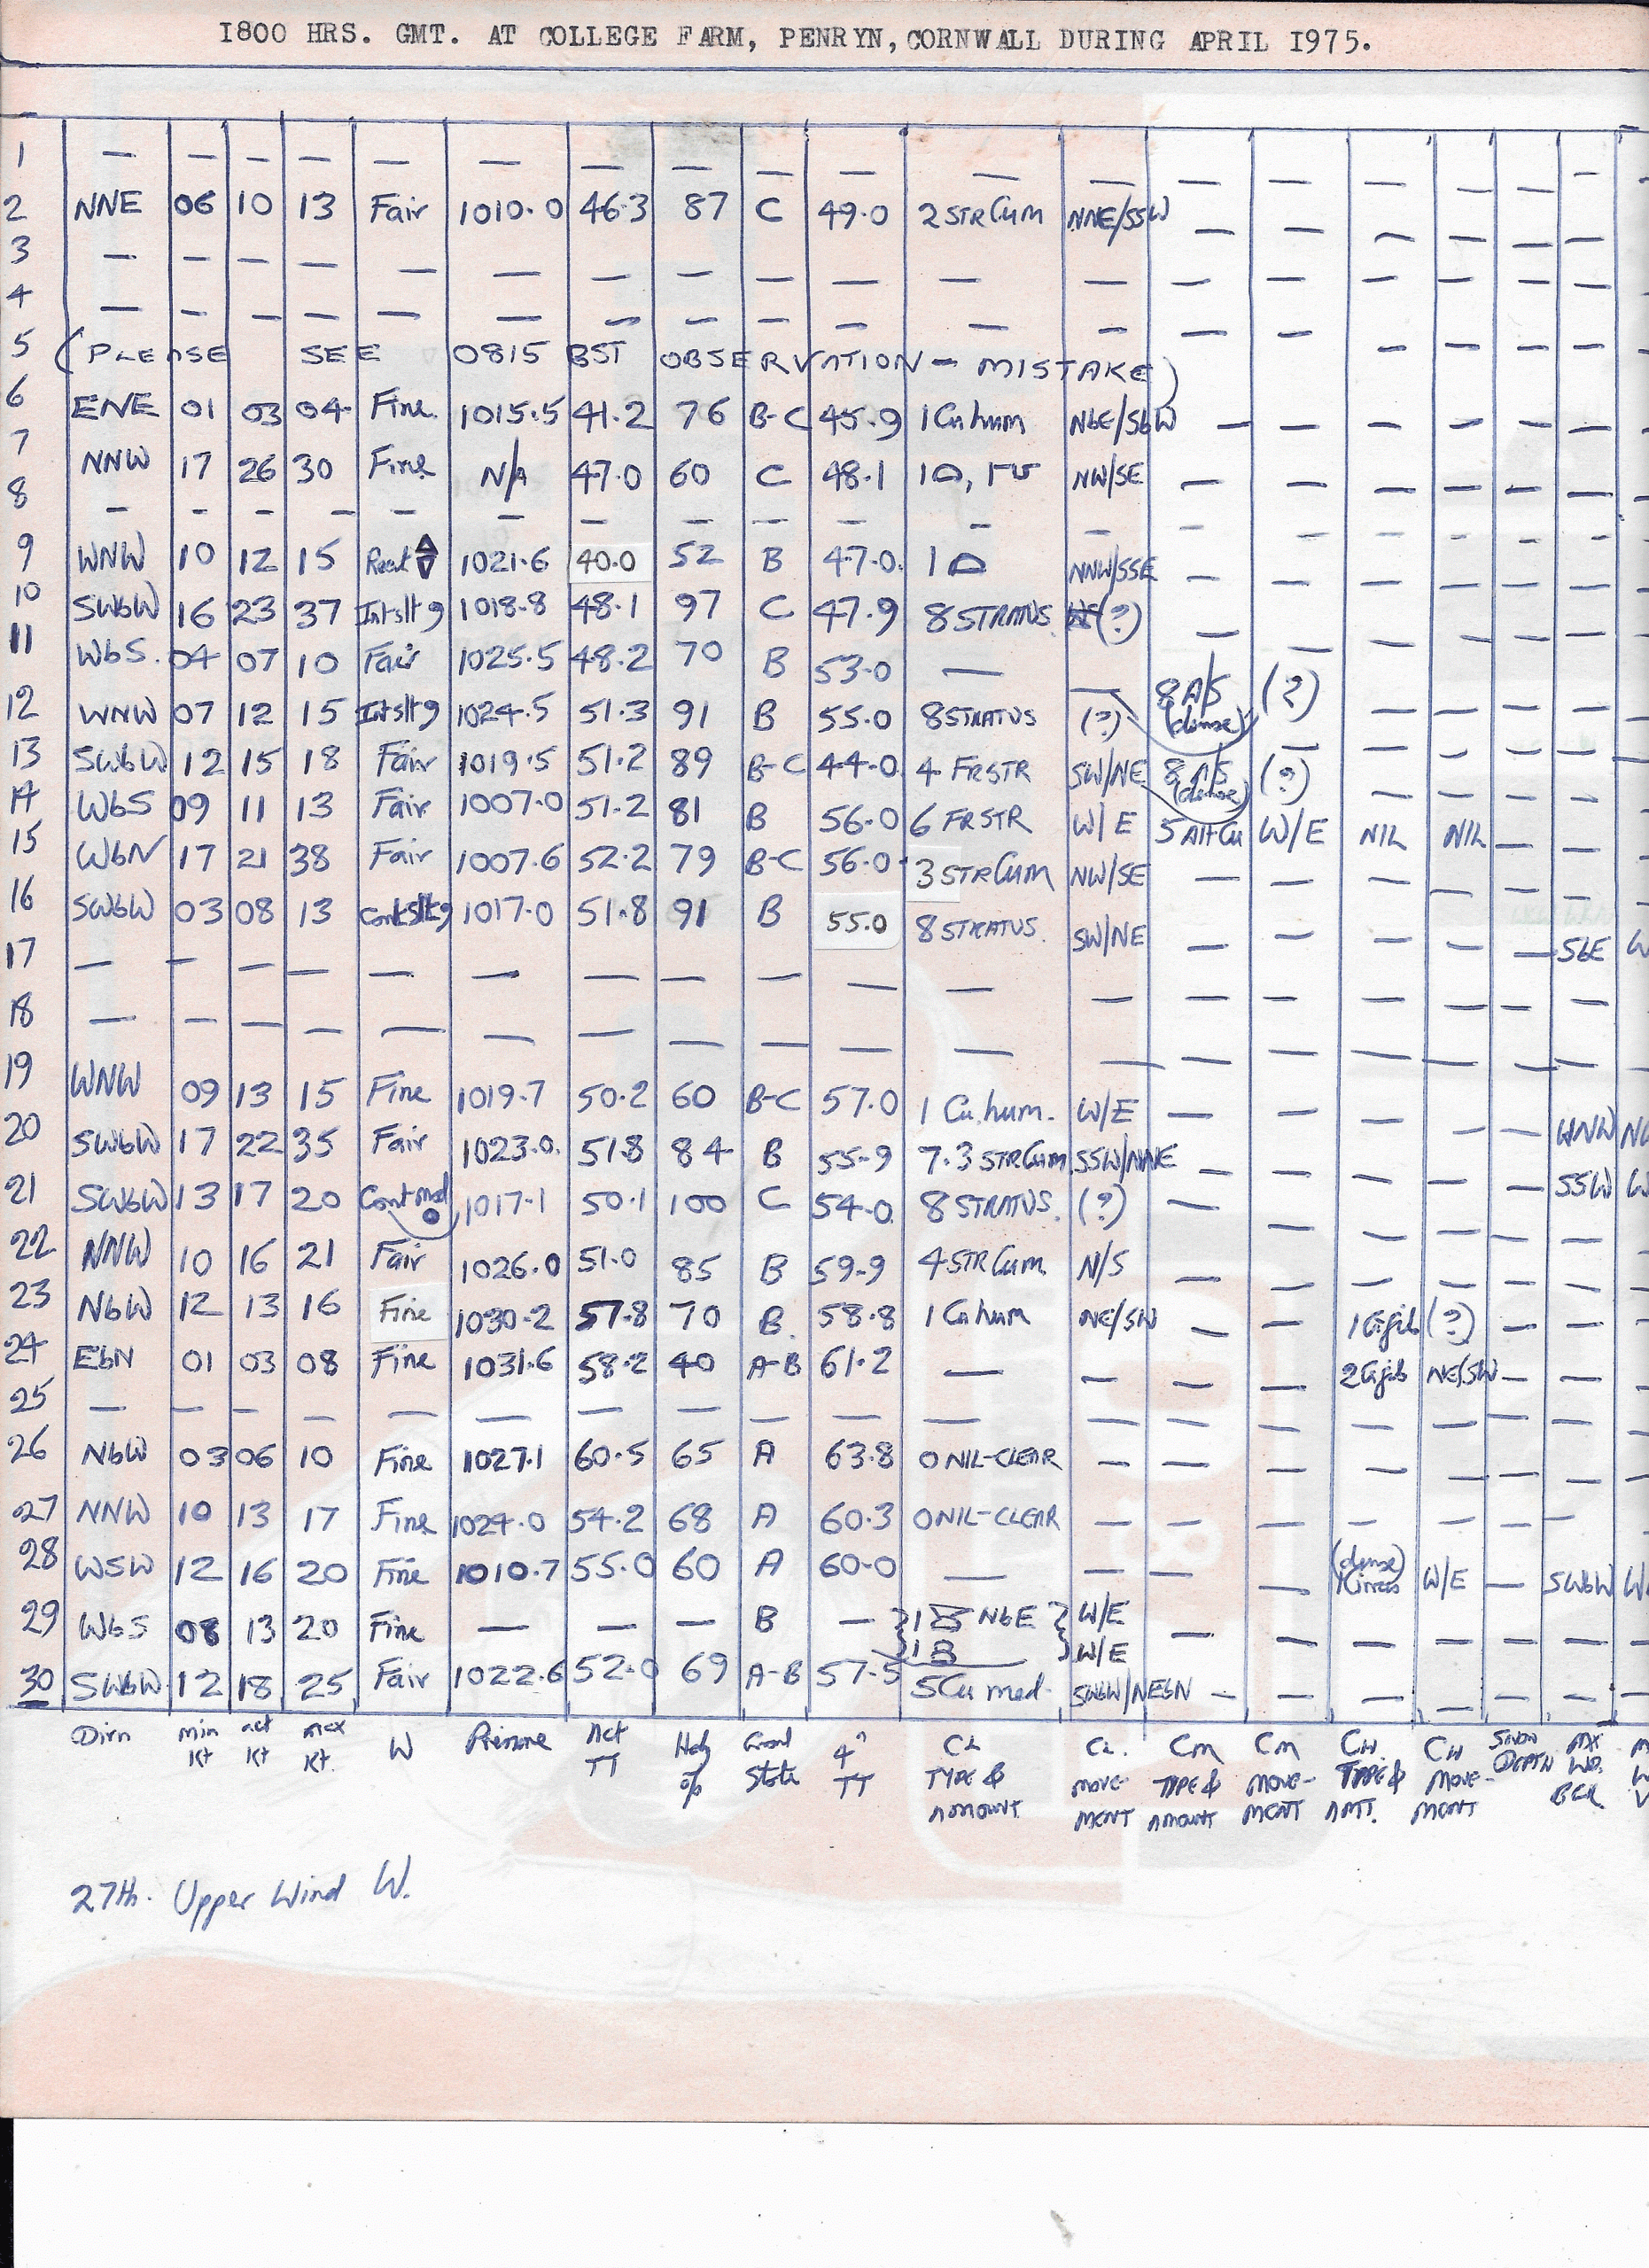 1800 HRS. GMT. AT COLLEGE FARM, PENRYN, CORNWALL DURING APRIL 1975.
1 — — — — — — — — — — — — — — — — — —
2 NNE 06 10 13 Fair 1010.0 46.3 87 C 49.0 2 STR Cum NNE/SSW — — — — — —
3 — — — — — — — — — — — — — — — — — —
4 — — — — — — — — — — — — — — — — — —
5 (PLEASE SEE 0815 BST OBSERVATION – MISTAKE)
6 ENE 01 03 04 Fine. 1015.5 41.2 76 B-C 45.9 1 Cu hum NbE/SbW — — — — — —
7 NNW 17 26 30 Fine N/A 47.0 60 C 48.1 1 , 1 NW/SE — — — — — —
8 — — — — — — — — — — — — — — — — — —
9 WNW 10 12 15 1021.6 40.0 52 B 47.0 1 NNW/SSE — — — — — —
10 SWbW 16 23 37 Int slt 9 1018.8 48.1 97 C 47.9 8 STRATUS. (?) — — — — — —
11 WbS. 04 07 10 Fair 1025.5 48.2 70 B 53.0 — — 8 A/S (dense) (?) — — — —
12 WNW 07 12 15 Int slt 9 1024.5 51.3 91 B 55.0 8 STRATUS (?) — — — —
13 SWbW 12 15 18 Fair 1019.5 51.2 89 B-C 44.0 4 FRSTR SW/NE 8 A/S (dense) (?) — — — —
14 WbS 09 11 13 Fair 1007.0 51.2 81 B 56.0 6 FRSTR W/E 5 Alt Cu W/E NIL NIL — —
15 WbN 17 21 38 Fair 1007.6 52.2 79 B-C 56.0 3 STR Cum NW/SE — — — — — —
16 SWbW 03 08 13 Cont slt 9 1017.0 51.8 91 B 55.0 8 STRATUS. SW/NE — — — — — SbE W
17 — — — — — — — — — — — — — — — — — —
18 — — — — — — — — — — — — — — — — — —
19 WNW 09 13 15 Fine 1019.7 50.2 60 B-C 57.0 1 Cu. hum. W/E — — — — — WNW
20 SWbW 17 22 35 Fair 1023.0. 51.8 84 B 55.9 7.3 STR Cum SSW/NNE — — — — — SSW W
21 SWbW 13 17 20 Cont mod 1017.1 50.1 100 C 54.0 8 STRATUS. (?) — — — — — —
22 NNW 10 16 21 Fair 1026.0 51.0 85 B 59.9 4 STR Cum. N/S — — — — — —
23 NbW 12 13 16 Fine 1030.2 57.8 70 B. 58.8 1 Cu hum NE/SW — — (?) — —
24 EbN 01 03 08 Fine 1031.6 58.2 40 A-B 61.2 — — — — NE/SW — —
25 — — — — — — — — — — — — — — — — — —
26 NbW 03 06 10 Fine 1027.1 60.5 65 A 63.8 0 NIL-CLEAR — — — — — — —
27 NNW 10 13 17 Fine 1024.0 54.2 68 A 60.3 0 NIL-CLEAR — — — — — — —
28 WSW 12 16 20 Fine 1010.7 55.0 60 A 60.0 — — — — (dense) 1 Cirrus W/E — SWbW W
29 WbS 08 13 20 Fine — — — B — }1 NbE } W/E — — — — — —
}1 } W/E
30 SWbW 12 18 25 Fair 1022.6 52.0 69 A-B 57.5 5 Cu med. SWbW/NEbN — — — — — —
Dirn min Kt act Kt max Kt. W Pressure Act TT Hdy % Grnd State 4" TT CL TYPE & AMOUNT CL. MOVE-MENT CM TYPE & AMOUNT CM MOVE-MENT CH TYPE & AMT. CH MOVE-MENT SNOW DEPTH MX WD.
27th. Upper Wind W.